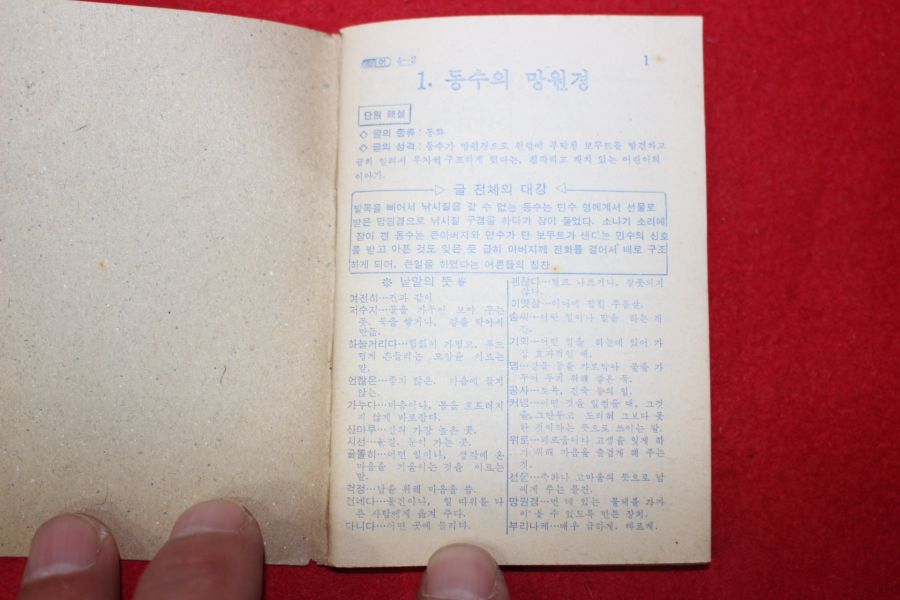 국어 4-2
1
1. 동수의 망원경
단원 해설
◇ 글의 종류 : 동화
◇ 글의 성격 : 동수가 망원경으로 원럽에 부딪친 보우트를 발견하고
급히 알려서 무사히 구조하게 했다는, 침착하고 재치 있는 어린이의
이야기.
글 전체의 대강
발목을 삐어서 낚시질을 갈 수 없는 동수는 민수 형에게서 선물로
받은 망원경으로 낚시질 구경을 하다가 잠이 들었다. 소나기 소리에
잠이 깬 동수는 큰아버지와 민수가 탄 보우트가 샌다는 민수의 신호
를 받고 아픈 것도 잊은 듯 급히 아버지께 전화를 걸어서 배로 구조
하게 되어, 큰일을 하였다는 어른들의 칭찬
※ 낱말의 뜻 ※
여전히…전과 같이
저수지…물을 가두어 모아 두는
곳. 둑을 쌓거나, 강을 막아서
만듦.
하늘거리다…힘없이 가볍고, 부드
럽게 흔들리는 모양을 이르는
말.
언짢은…좋지 않은. 마음에 들지
않는.
가누다…마음이나, 몸을 흐트러지
지 않게 바로잡다.
산마루…산의 가장 높은 곳.
시선…눈길. 눈이 가는 곳.
골똘히…어떤 일이나, 생각에 온
마음을 기울이는 것을 이르는
말.
걱정…남을 위해 마음을 씀.
건네다…물건이나, 일 따위를 다
른 사람에게 옮겨 주다.
다니다…어떤 곳에 들리다.
괜찮다…별로 나쁘거나, 잘못되지
않다.
이맛살…이마에 잡힌 주름살.
솜씨…어떤 일이나 말을 하는 재
간.
기회…어떤 일을 하는데 있어 가
장 효과적인 때.
댐…강물 등을 가로막아 물을 가
두어 두기 위해 쌓은 둑.
공사…토목, 건축 등의 일.
커녕…어떤 것을 일컬을 때, 그것
을 그만두고 도리어 그보다 못
한 것이라는 뜻으로 쓰이는 말.
위로…괴로움이나 고생을 잊게 하
기 위해 마음을 즐겁게 해 주는
것.
선물…축하나 고마움의 뜻으로 남
에게 주는 물건.
망원경…먼 데 있는 물체를 가까
이 볼 수 있도록 만든 장치.
부리나케…매우 급하게. 빠르게.